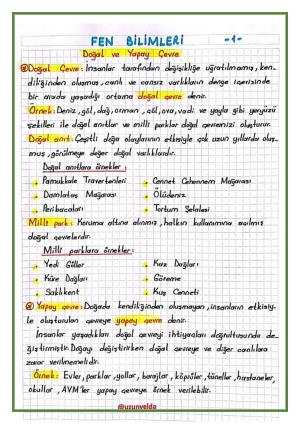 FEN BİLİMLERİ -1-
Doğal ve Yapay Çevre
Doğal Çevre: İnsanlar tarafından değişikliğe uğratılmamış, ken-
diliğinden oluşmuş, canlı ve cansız varlıkların denge içerisinde
bir arada yaşadığı ortama doğal çevre denir.
Örnek: Deniz, göl, dağ, orman, çöl, ova, vadi ve yayla gibi yeryüzü
şekilleri ile doğal anıtlar ve milli parklar doğal çevremizi oluşturur.
Doğal anıt: Çeşitli doğa olaylarının etkisiyle çok uzun yıllarda oluş-
muş, görülmeye değer doğal varlıklardır.
Doğal anıtlara örnekler:
Pamukkale Travertenleri
Cennet Cehennem Mağarası
Damlataş Mağarası
Ölüdeniz
Peribacaları
Tortum Şelalesi
Milli park: Koruma altına alınmış, halkın kullanımına açılmış
doğal çevrelerdir.
Milli parklara örnekler:
Yedi Göller
Kaz Dağları
Küre Dağları
Göreme
Saklıkent
Kuş Cenneti
Yapay çevre: Doğada kendiliğinden oluşmayan, insanların etkisiy-
le oluşturulan çevreye yapay çevre denir.
İnsanlar yaşadıkları doğal çevreyi ihtiyaçları doğrultusunda de-
ğiştirmiştir. Doğayı değiştirirken doğal çevreye ve diğer canlılara
zarar verilmemelidir.
Örnek: Evler, parklar, yollar, barajlar, köprüler, tüneller, hastaneler,
okullar, AVM'ler yapay çevreye örnek verilebilir.
@uzunvelda